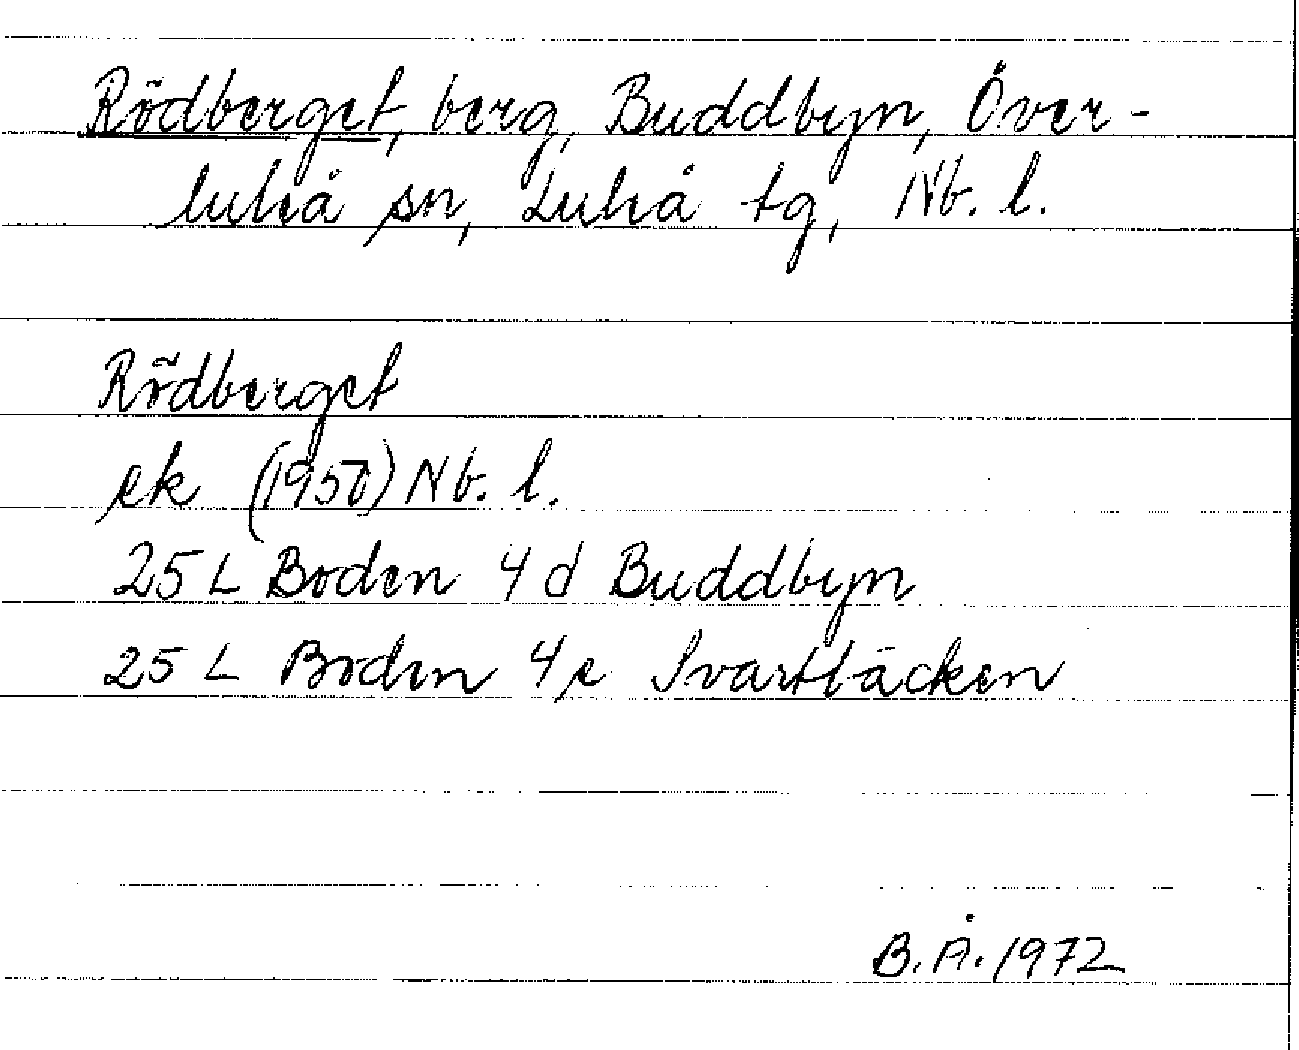 Rödberget, berg, Buddbyn, Över-
luleå sn, Luleå tg, Nb. l.
Rödberget
ek (1950) Nb. l.
25 L Boden 4 d Buddbyn
25 L Boden 4 e Svartbäcken
B. Å. 1972